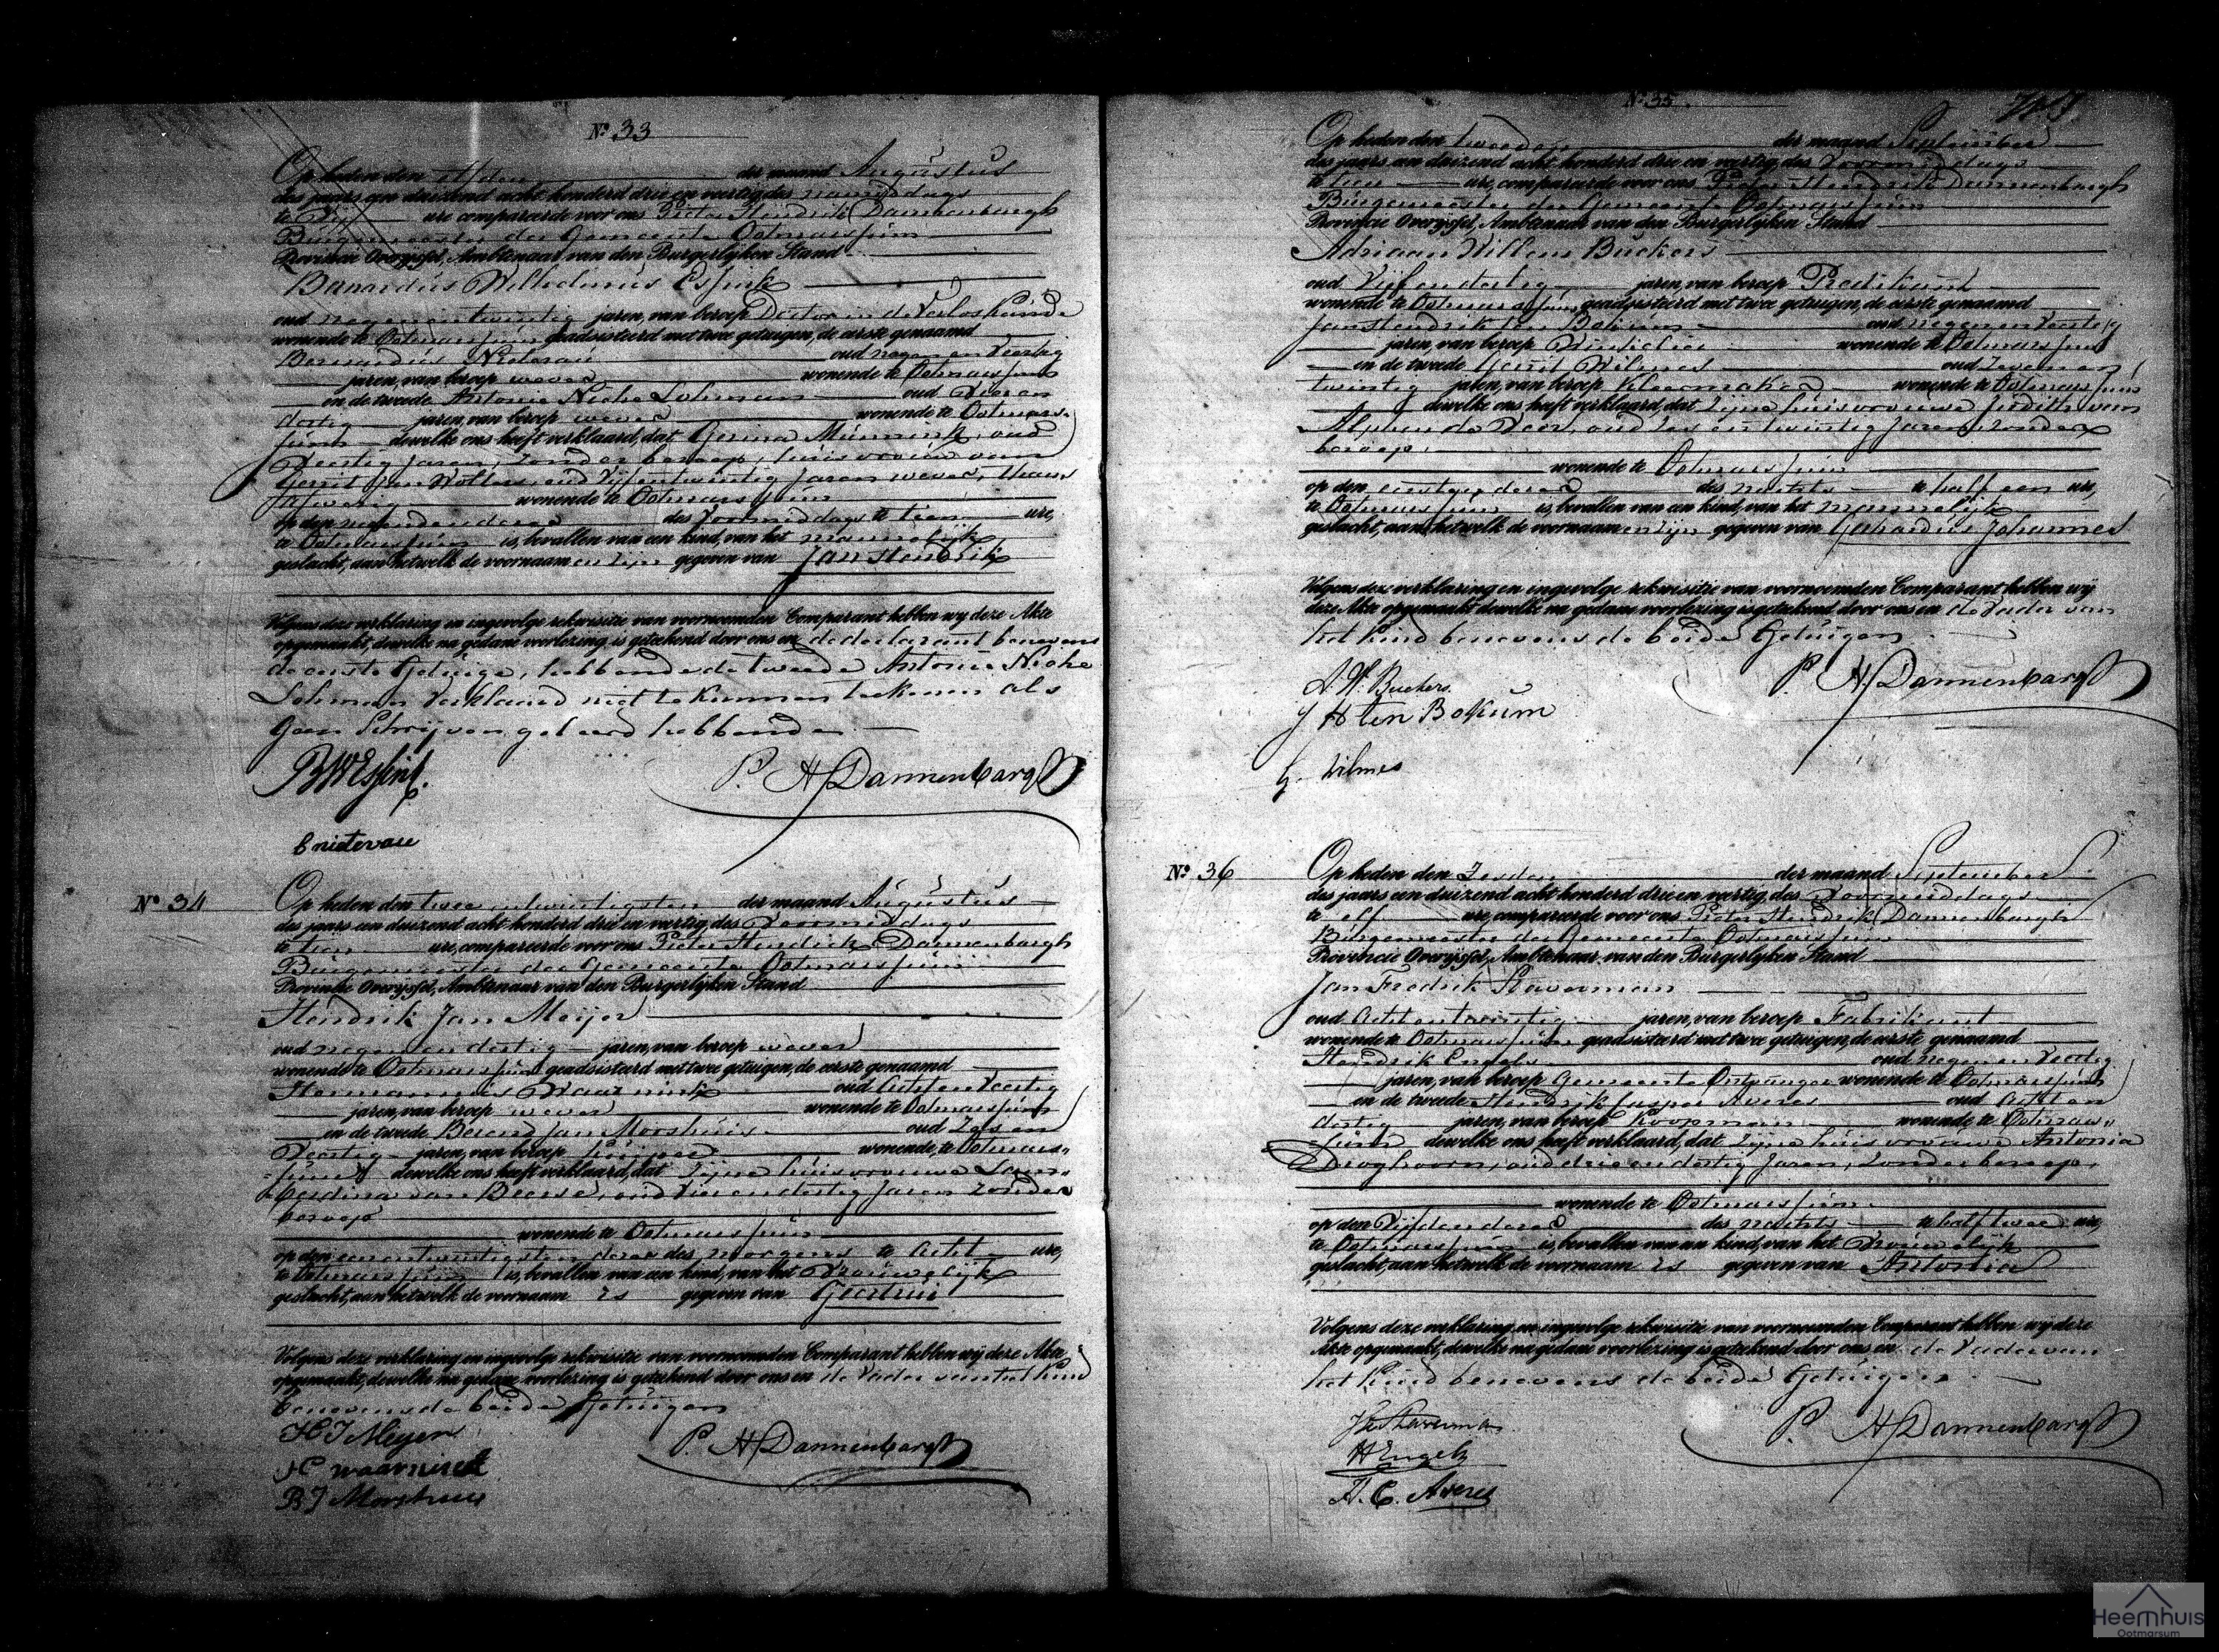 Nº 33
Op heden den elfden der maand Augustus
des jaars een duizend acht honderd drie en veertig, des namiddags
te Vijf ure compareerde voor ons Pieter Hendrik Dannenbargh
Burgemeester der Gemeente Ootmarssum
Provincie Overijssel, Ambtenaar van den Burgerlyken Stand
Banardus Wilhelmus Essink
oud negenentwintig jaren, van beroep Doctor in de Verloskunde
wonende te Ootmarssum geadsisteerd met twee getuigen, de eerste genaamd
Bernardus oud negen en Veertig
jaren, van beroep wever wonende te Ootmarssum
en de tweede Antonie Niehe Lohman oud Vier en
dertig jaren, van beroep wever wonende te Ootmars-
sum dewelke ons heeft verklaard, dat Gesina Munnink, oud
Veertig Jaren, zonder beroep, huisvrouw van
Gerrit Jan Wolters, oud Vijfentwintig Jaren wever,
wonende te Ootmarssum
op den negenden dezer des Voormiddags te tien ure,
te Ootmarssum is bevallen van een kind, van het mannelijk
geslacht, aan hetwelk de voornaam en zijn gegeven van Jan Hendrik
Volgens deze verklaring en ingevolge rekwisitie van voornoemden Comparant hebben wy deze Akte
opgemaakt, dewelke na gedane voorlezing is getekend door ons en de declarant benevens
de eerste Getuige, hebbende de tweede Antonie Niehe
Lohman Verklaard niet te kunnen tekenen als
Geen Schrijven geleerd hebbende
BWEssink.
P. H Dannenbargh
Nº 34
Op heden den twee entwintigsten der maand Augustus
des jaars een duizend acht honderd drie en veertig, des Voormiddags
te tien ure, compareerde voor ons Pieter Hendrik Dannenbargh
Burgemeester der Gemeente Ootmarssum
Provincie Overijssel, Ambtenaar van den Burgerlyken Stand
Hendrik Jan Meijer
oud negen en dertig jaren, van beroep wever
wonende te Ootmarssum geadsisteerd met twee getuigen, de eerste genaamd
Hermannus Waarnink oud Acht en Veertig
jaren, van beroep wever wonende te Ootmarssum
en de tweede Berend Jan Morshuis oud Zes en
Veertig jaren, van beroep kuiper wonende te Ootmars-
sum dewelke ons heeft verklaard, dat zijne huisvrouwe Lam-
berdina van Beerse, oud Vier en dertig Jaren zonder
beroep
wonende te Ootmarssum
op den eenentwintigsten dezer des morgens te Acht ure,
te Ootmarssum is bevallen van een kind, van het Vrouwelijk
geslacht, aan hetwelk de voornaam is gegeven van Geertrui
Volgens deze verklaring en ingevolge rekwisitie van voornoemden Comparant hebben wij deze Akte
opgemaakt, dewelke na gedane voorlezing is getekend door ons en de Vader van het kind
benevens de beide Getuigen
H J Meyer
H waarninck
B J Morshuis
P. H Dannenbargh
Nº 35.
Op heden den tweeden der maand September
des jaars een duizend acht honderd drie en veertig, des Voormiddags
te tien ure, compareerde voor ons Pieter Hendrik Dannenbargh
Burgemeester der Gemeente Ootmarssum
Provincie Overijssel, Ambtenaar van den Burgerlyken Stand
Adriaan Willem Buckers
oud Vijf en dertig jaren, van beroep Predikant
wonende te Ootmarssum geadsisteerd met twee getuigen, de eerste genaamd
Jan Hendrik ten Bokum oud negen en Veertig
jaren, van beroep Winkelier wonende te Ootmarssum
en de tweede Gerrit Wilmes oud Zeven en
twintig jaren, van beroep kleermaker wonende te Ootmarssum
dewelke ons heeft verklaard, dat zijne huisvrouwe Judith van
Alphen de Veer, oud zes en twintig Jaren, zonder
beroep,
wonende te Ootmarssum
op den eersten dezer des nachts te half een ure,
te Ootmarssum is bevallen van een kind, van het mannelijk
geslacht, aan hetwelk de voornaam en zijn gegeven van Gerhardus Johannes
Volgens deze verklaring en ingevolge rekwisitie van voornoemden Comparant hebben wij
deze Akte opgemaakt dewelke na gedane voorlezing is getekend door ons en de Vader van
het kind benevens de beide Getuigen
A. W. Buckers.
J H ten Bokum
G. Wilmes
P. H Dannenbargh
Nº 36
Op heden den Zesden der maand September
des jaars een duizend acht honderd drie en veertig, des Voormiddags
te elf ure, compareerde voor ons Pieter Hendrik Dannenbargh
Burgemeester der Gemeente Ootmarssum
Provincie Overijssel, Ambtenaar van den Burgerlyken Stand
Jan Fredrik Staverman
oud Achtentwintig jaren, van beroep Fabrikant
wonende te Ootmarssum geadsisteerd met twee getuigen, de eerste genaamd
Hendrik Engels oud negen en Veertig
jaren, van beroep Gemeente Ontvanger wonende te Ootmarssum
en de tweede Hendrik Averes oud Acht en
dertig jaren, van beroep Koopman wonende te Ootmars-
sum dewelke ons heeft verklaard, dat zijne huisvrouwe Antonia
Droghoorn, oud drie en dertig Jaren, zonder beroep,
wonende te Ootmarssum
op den Vijfden dezer des nachts te half twee ure,
te Ootmarssum is bevallen van een kind, van het Vrouwelijk
geslacht, aan hetwelk de voornaam is gegeven van Antonia
Volgens deze verklaring en ingevolge rekwisitie van voornoemden Comparant hebben wy deze
Akte opgemaakt, dewelke na gedane voorlezing is getekend door ons en de Vader van
het kind benevens de beide Getuigen
H Engels
P. H Dannenbargh
Heemhuis
Ootmarsum